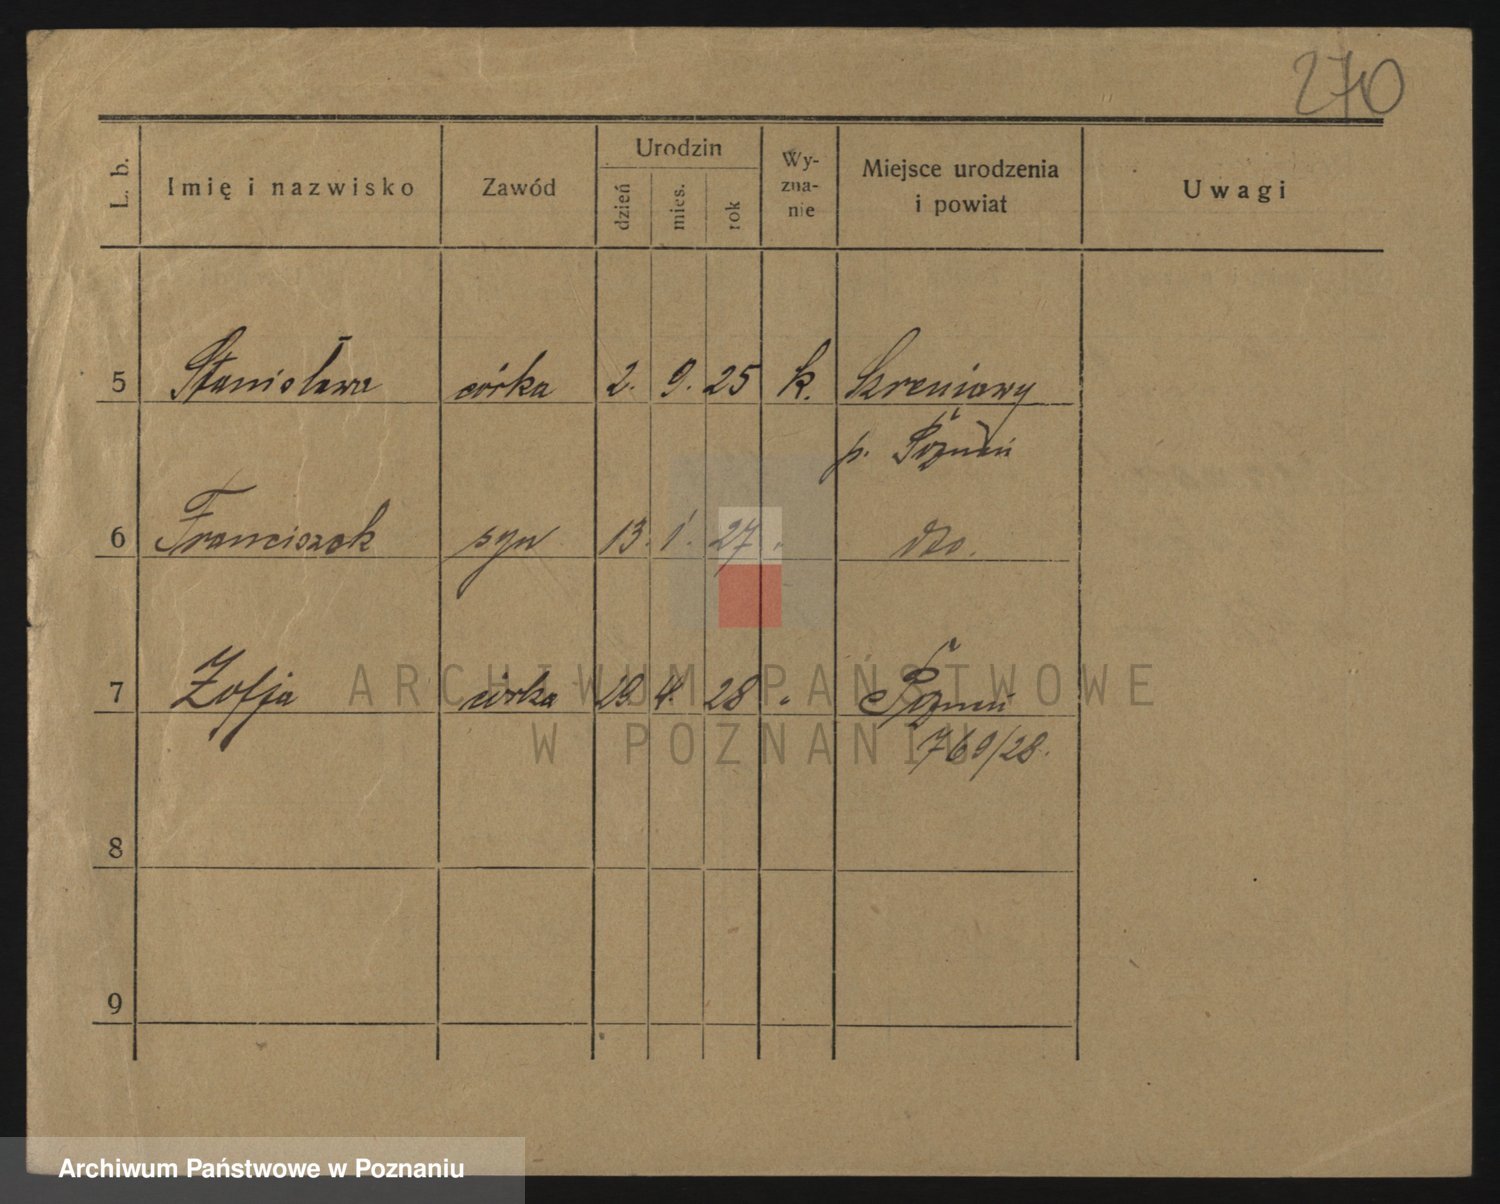 270
L. b. Imię i nazwisko Zawód Urodzin dzień mies. rok Wy-zna-nie Miejsce urodzenia i powiat Uwagi
5 Stanisława córka 2. 9. 25 k. Skreniawy
p. Poznań
6 Franciszek syn 13. 1. 27 " dto.
7 Zofja córka 29. 4. 28 " Poznań
769/28.
8
9
ARCHIWUM PAŃSTWOWE
W POZNANIU
Archiwum Państwowe w Poznaniu